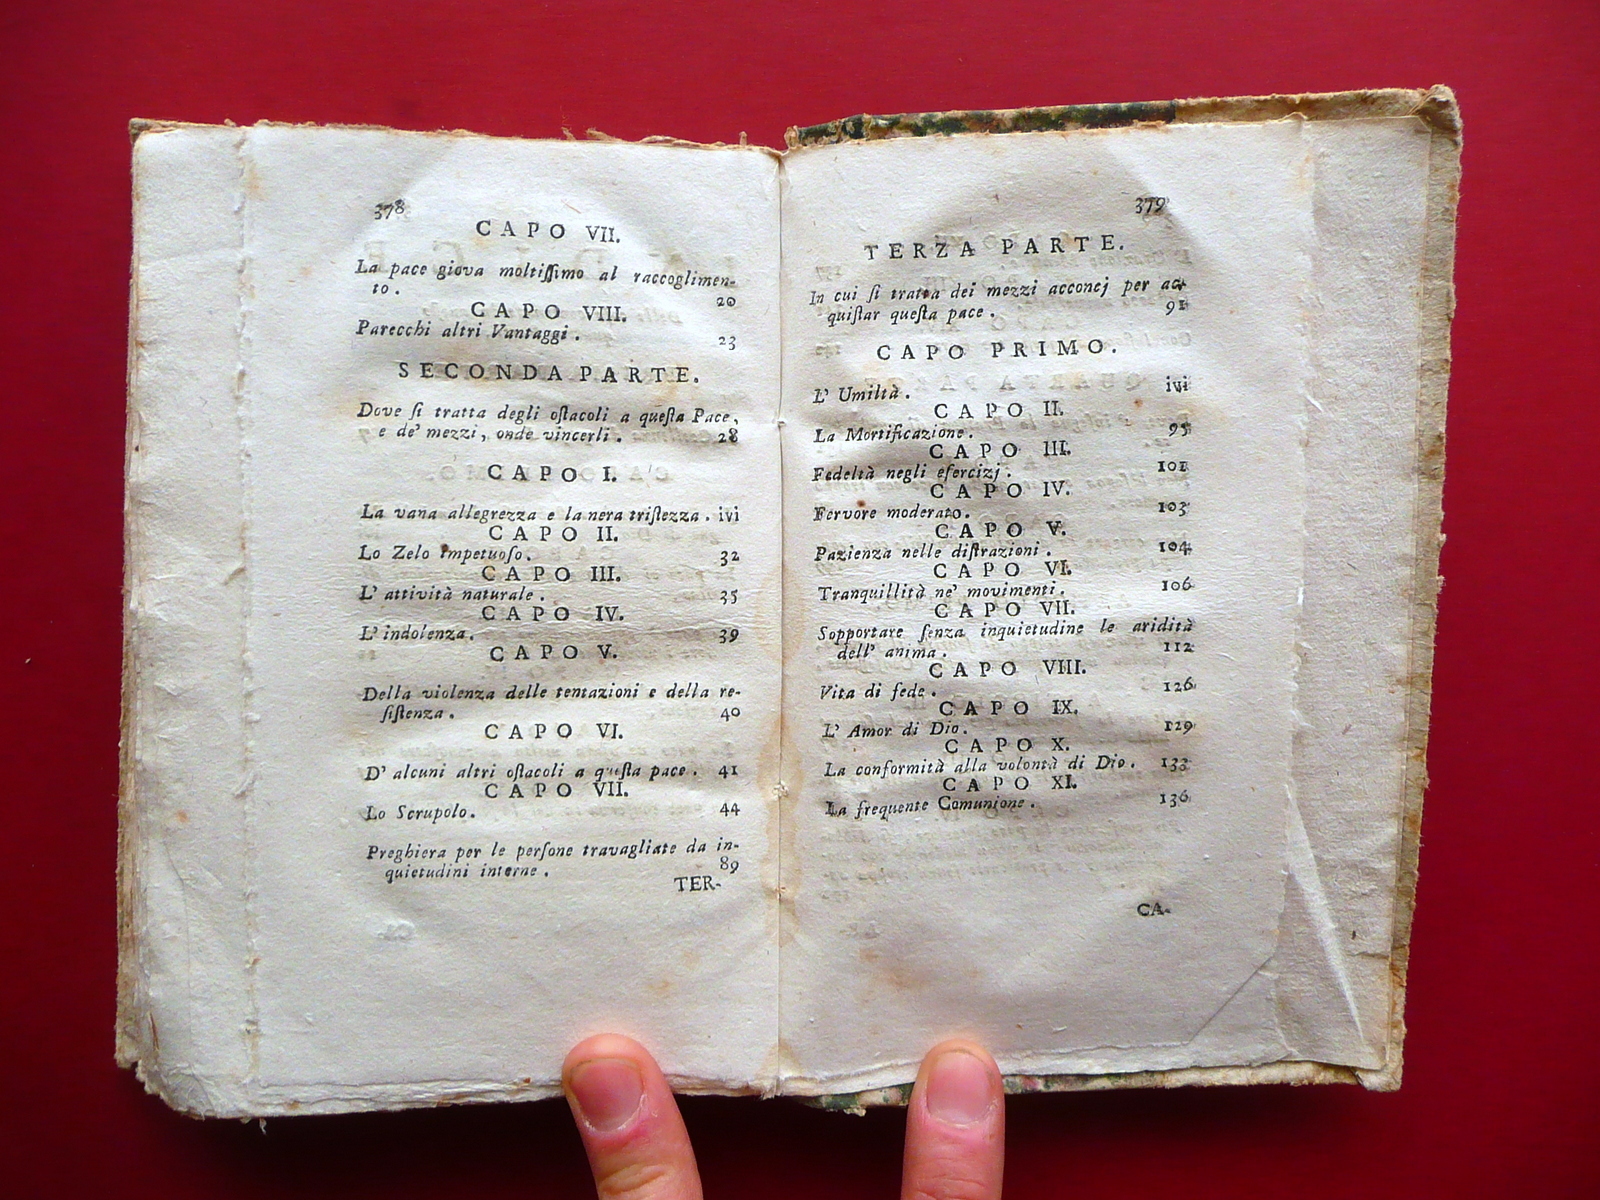 378
CAPO VII.
La pace giova moltiſſimo al raccoglimen-
to. 20
CAPO VIII.
Parecchi altri Vantaggi. 23
SECONDA PARTE.
Dove ſi tratta degli oſtacoli a queſta Pace,
e de' mezzi, onde vincerli. 28
CAPO I.
La vana allegrezza e la nera triſtezza. ivi
CAPO II.
Lo Zelo impetuoſo. 32
CAPO III.
L' attività naturale. 35
CAPO IV.
L' indolenza. 39
CAPO V.
Della violenza delle tentazioni e della re-
ſiſtenza. 40
CAPO VI.
D' alcuni altri oſtacoli a queſta pace. 41
CAPO VII.
Lo Scrupolo. 44
Preghiera per le perſone travagliate da in-
quietudini interne. 89
TER-
379
TERZA PARTE.
In cui ſi tratta dei mezzi acconcj per ac-
quiſtar queſta pace. 91
CAPO PRIMO.
L' Umiltà. ivi
CAPO II.
La Mortificazione. 95
CAPO III.
Fedeltà negli eſercizj. 101
CAPO IV.
Fervore moderato. 103
CAPO V.
Pazienza nelle diſtrazioni. 104
CAPO VI.
Tranquillità ne' movimenti. 106
CAPO VII.
Sopportare ſenza inquietudine le aridità
dell' anima. 112
CAPO VIII.
Vita di fede. 126
CAPO IX.
L' Amor di Dio. 129
CAPO X.
La conformità alla volontà di Dio. 133
CAPO XI.
La frequente Comunione. 136
CA-